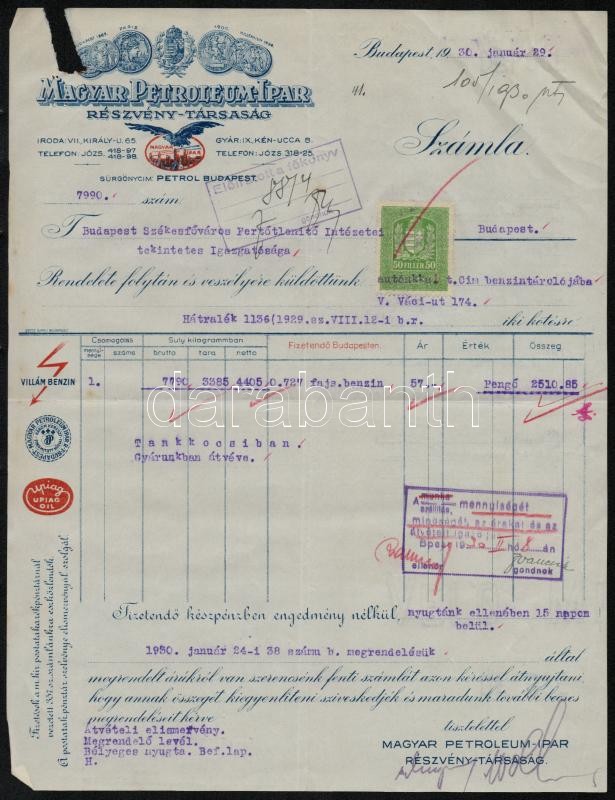 Budapest, 1930. január 29.
MAGYAR PETROLEUM-IPAR
RÉSZVÉNY-TÁRSASÁG
IRODA: VII, KIRÁLY-U. 65.
TELEFON: JÓZS. 418-97
418-98.
GYÁR: IX, KÉN-UCCA 8.
TELEFON: JÓZS 318-25.
MAGYAR
IPAR
SÜRGÖNYCIM: PETROL BUDAPEST
Számla.
7990. szám
főkönyv
T Budapest Székesfőváros Fertőtlenitő Intézetei
tekintetes Igazgatósága
Budapest.
50 FILLÉR 50
Rendelete folytán és veszélyére küldöttünk
autónkkal t.Cim benzintárolójába
V. Váci-ut 174.
Hátralék 1136(1929.sz.VIII.12-i b.r.
iki kötésre
Csomagolás
Suly kilogrammban
Fizetendő Budapesten.
Ár
Érték
Összeg
mennyisége
száma
brutto
tara
netto
1. 7790 3385 4405 0.727 fajs.benzin 57.- Pengő 2510.85
VILLÁM BENZIN
Tankkocsiban.
Gyárunkban átvéve.
upiag
UPIAG
OIL
A munka
szállítás, mennyiségét
minőségét, az árakat és az
ellenőr
gondnok
Fizetendő készpénzben engedmény nélkül, nyugtánk ellenében 15 napon
belül.
1930 január 24-i 38 számu b. megrendelésük által
megrendelt árúkról van szerencsénk fenti számlát azon kéréssel átnyujtani,
hogy annak összegét kiegyenlíteni sziveskedjék és maradunk további becses
megrendeléseit kérve
tisztelettel
Átvételi elismervény.
Megrendelő levél.
Bélyeges nyugta. Bef.lap.
H.
MAGYAR PETROLEUM-IPAR
RÉSZVÉNY-TÁRSASÁG.
Fizetések a m. kir. postatakarékpénztárnál
vezetett 337. sz. számlánkra eszközlendők
A postatakarékpénztár szelvénye elismervényül szolgál.
darabanth